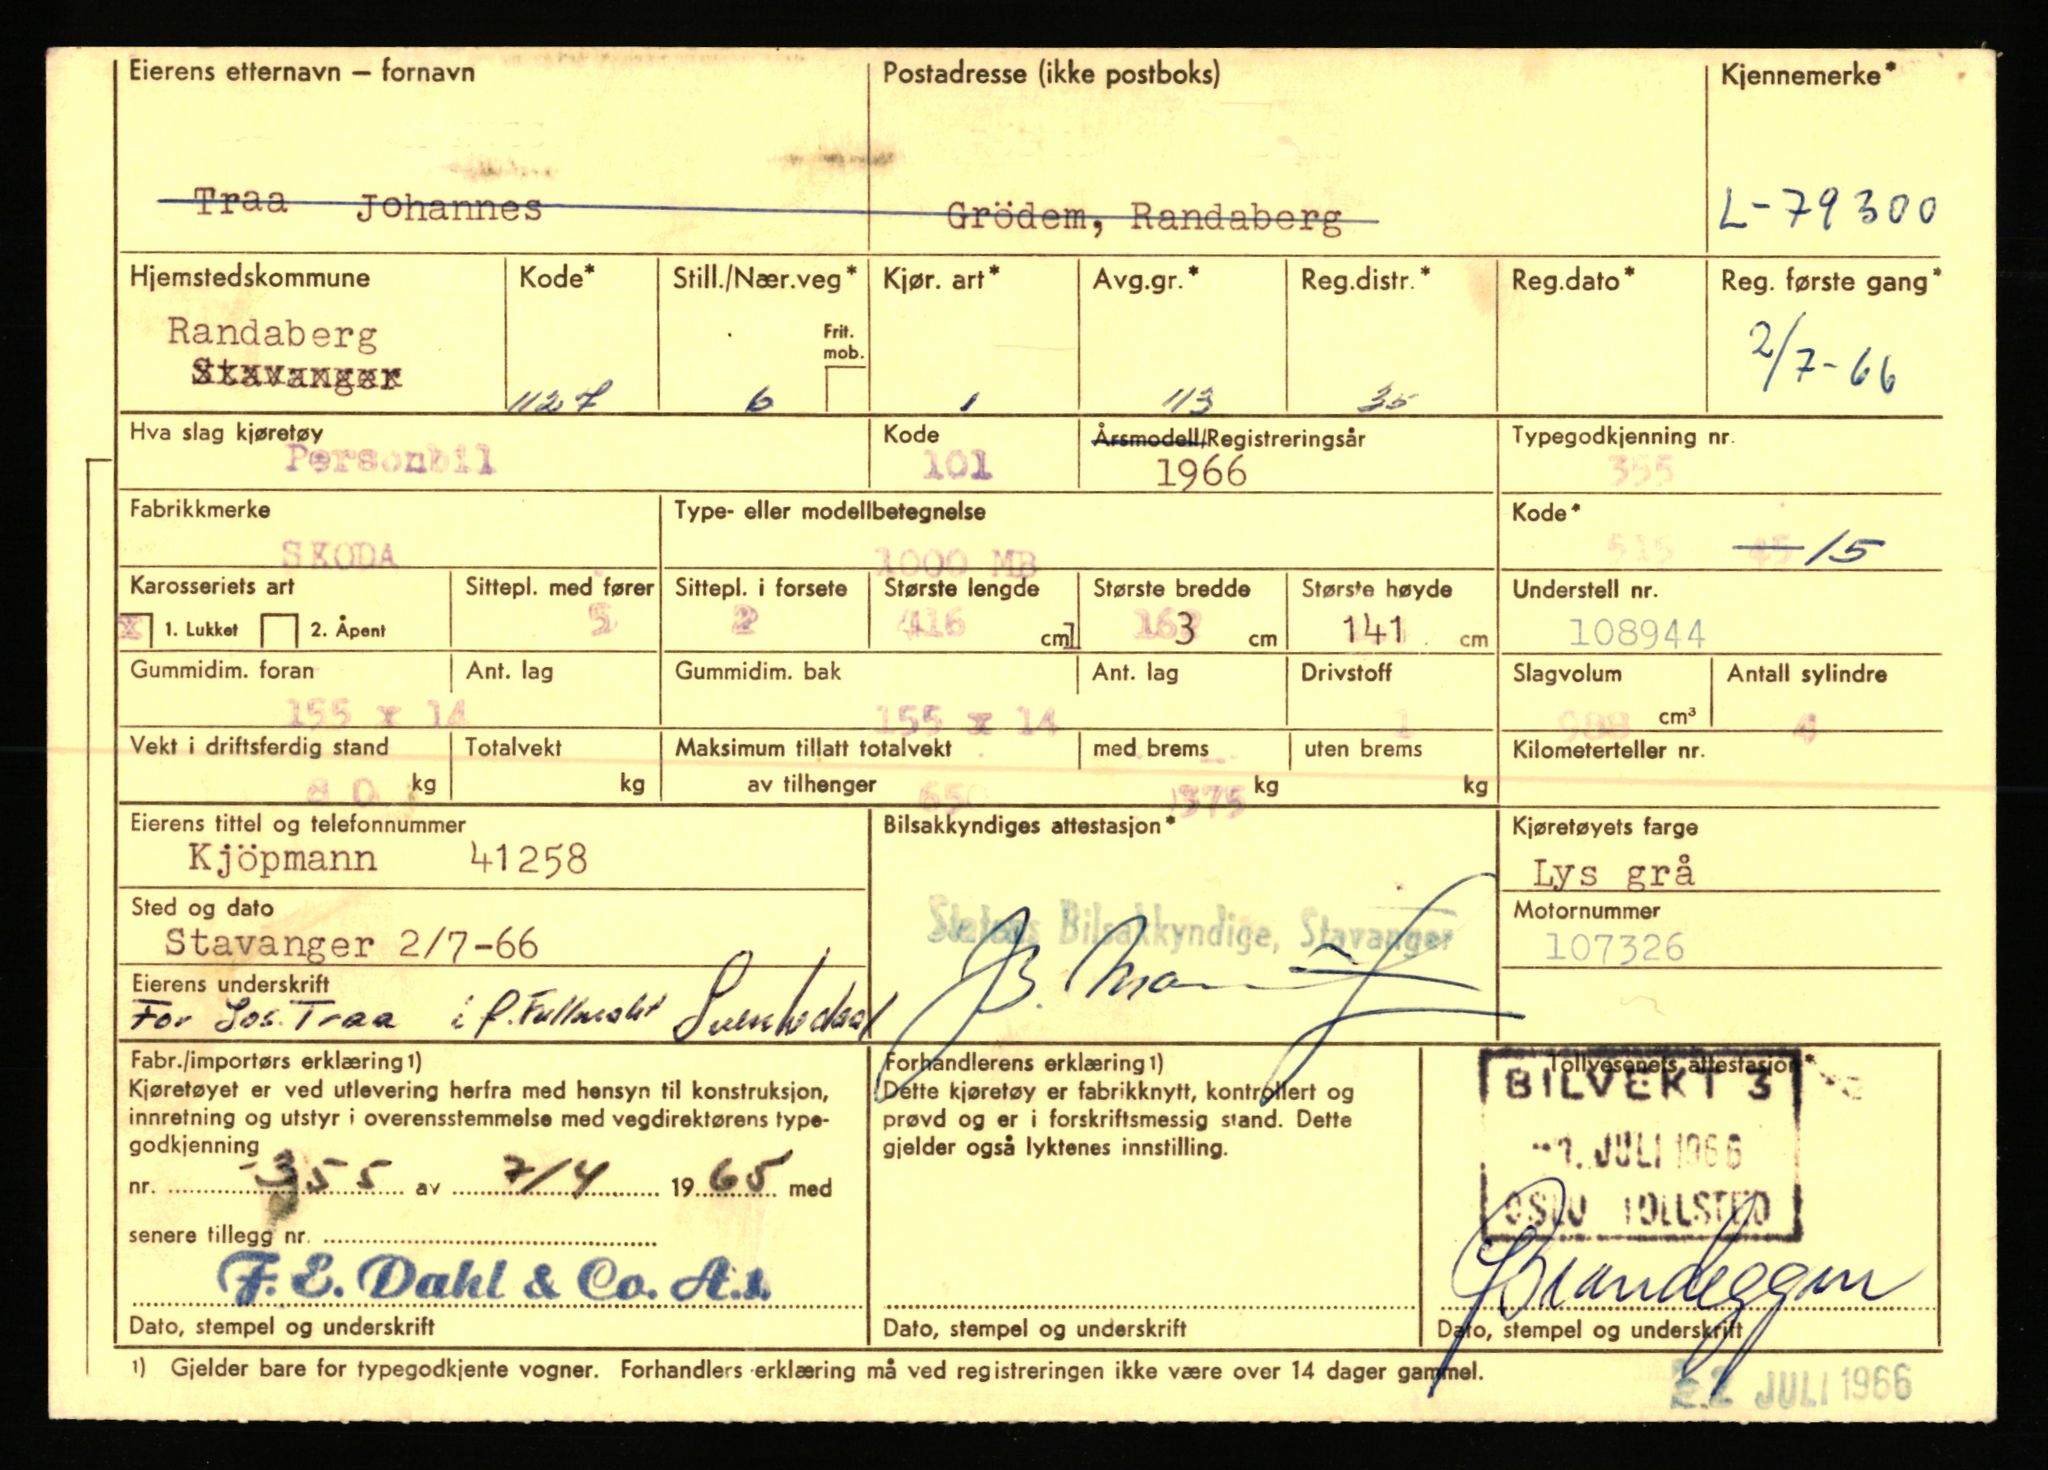 Eierens etternavn — fornavn
Postadresse (ikke postboks)
Kjennemerke*
Traa Johannes
Grödem, Randaberg
L-79300
Hjemstedskommune
Kode*
Still./Nær.veg*
Kjør. art*
Avg.gr.*
Reg.distr.*
Reg.dato*
Reg. første gang*
Randaberg
Stavanger
Frit.
mob.
1127
6
1
113
35
2/7-66
Hva slag kjøretøy
Kode
Årsmodell/Registreringsår
Typegodkjenning nr.
Personbil
101
1966
355
Fabrikkmerke
Type- eller modellbetegnelse
Kode*
SKODA
1000 MB
515 45 15
Karosseriets art
Sittepl. med fører
Sittepl. i forsete
Største lengde
Største bredde
Største høyde
Understell nr.
x 1. Lukket
2. Åpent
5
2
416 cm
3 cm
141 cm
108944
Gummidim. foran
Ant. lag
Gummidim. bak
Ant. lag
Drivstoff
Slagvolum
Antall sylindre
155 x 14
155 x 14
1
988 cm³
4
Vekt i driftsferdig stand
Totalvekt
Maksimum tillatt totalvekt
med brems
uten brems
Kilometerteller nr.
kg
kg
av tilhenger
650
375 kg
kg
Eierens tittel og telefonnummer
Bilsakkyndiges attestasjon*
Kjøretøyets farge
Kjöpmann 41258
Lys grå
Sted og dato
Statens Bilsakkyndige, Stavanger
Motornummer
Stavanger 2/7-66
107326
Eierens underskrift
For Jos. Traa i f. Fullmakt
Fabr./importørs erklæring1)
Kjøretøyet er ved utlevering herfra med hensyn til konstruksjon,
innretning og utstyr i overensstemmelse med vegdirektørens type-
godkjenning
nr. 355 av 7/4 1965 med
senere tillegg nr.
F. E. Dahl & Co. A.s.
Dato, stempel og underskrift
Forhandlerens erklæring1)
Dette kjøretøy er fabrikknytt, kontrollert og
prøvd og er i forskriftsmessig stand. Dette
gjelder også lyktenes innstilling.
Dato, stempel og underskrift
Tollvesenets attestasjon*
BILVEKT 3
-1. JULI 1966
OSLO TOLLSTED
Dato, stempel og underskrift
1) Gjelder bare for typegodkjente vogner. Forhandlers erklæring må ved registreringen ikke være over 14 dager gammel.
22 JULI 1966